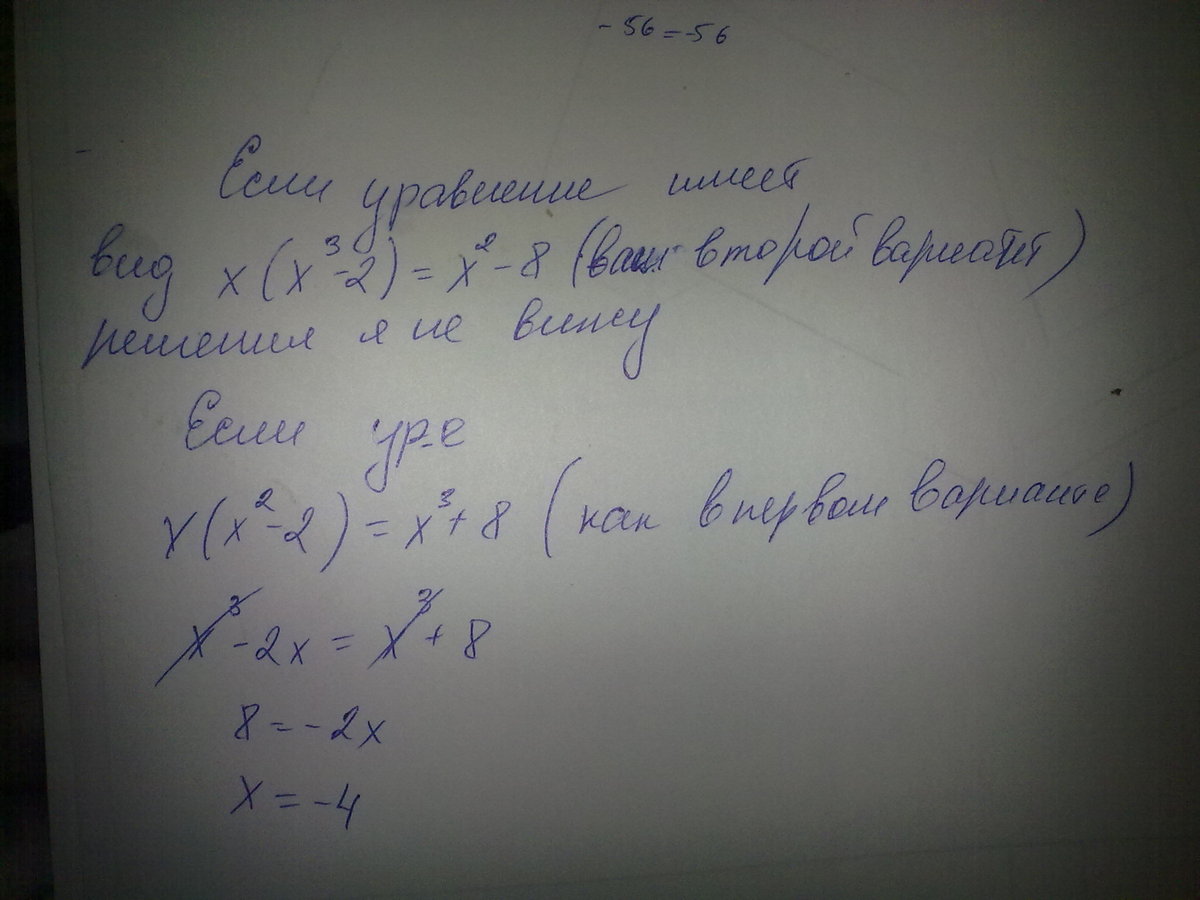 - 56 = -56
Если уравнение имеет
вид x(x³-2) = x²-8 (ваш второй вариант)
решения я не вижу
Если ур-е
x(x²-2) = x³+8 (как в первом варианте)
x³-2x = x³+8
8 = -2x
x = -4